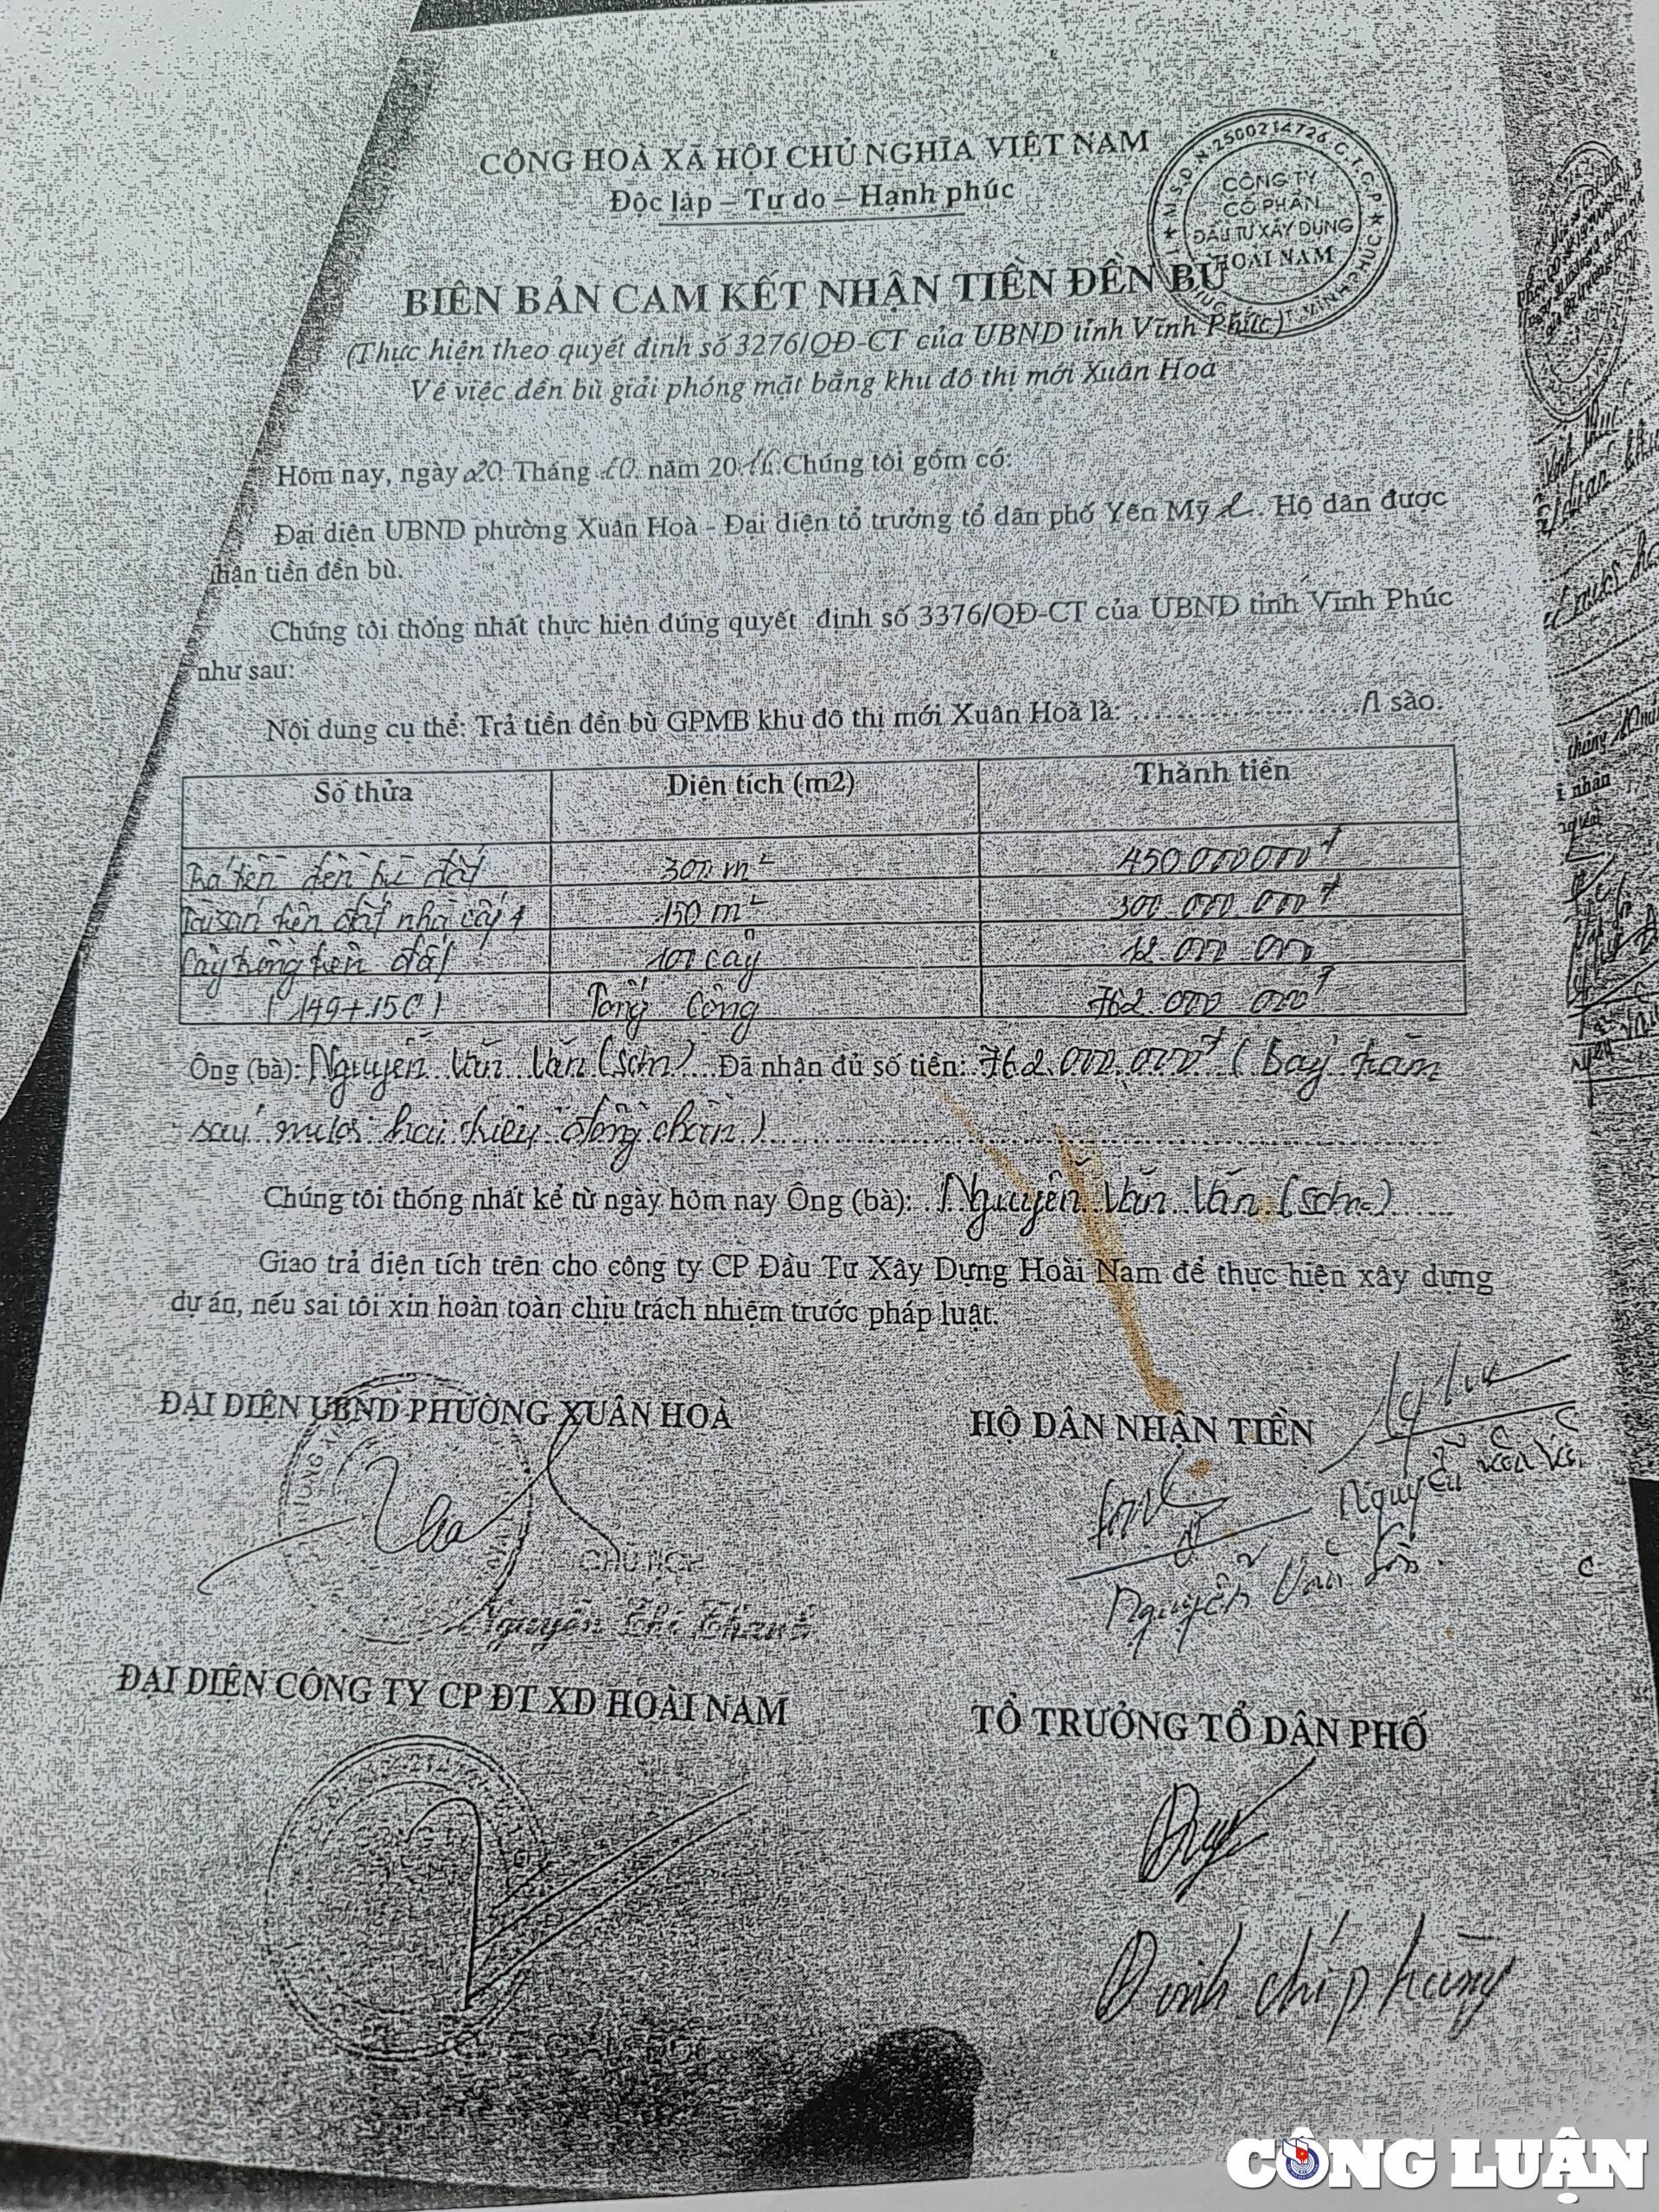 CỘNG HOÀ XÃ HỘI CHỦ NGHĨA VIỆT NAM
Độc lập – Tự do – Hạnh phúc
M.S.D.N.2500214726.C.T.C.P
CÔNG TY
CỔ PHẦN
ĐẦU TƯ XÂY DỰNG
HOÀI NAM
BIÊN BẢN CAM KẾT NHẬN TIỀN ĐỀN BÙ
(Thực hiện theo quyết định số 3276/QĐ-CT của UBND tỉnh Vĩnh Phúc)
Về việc đền bù giải phóng mặt bằng khu đô thị mới Xuân Hoà
Hôm nay, ngày 20 Tháng 10 năm 20 Chúng tôi gồm có:
Đại diện UBND phường Xuân Hoà - Đại diện tổ trưởng tổ dân phố Yên Mỹ . Hộ dân được
nhận tiền đền bù.
Chúng tôi thống nhất thực hiện đúng quyết định số 3376/QĐ-CT của UBND tỉnh Vĩnh Phúc
như sau:
Nội dung cụ thể: Trả tiền đền bù GPMB khu đô thị mới Xuân Hoà là: sào.
Số thửa Diện tích (m2) Thành tiền
Trả tiền đền bù đất 300 m² 450.000.000đ
Tài sản trên đất nhà cấp 4 150 m² 300.000.000đ
Cây trồng trên đất 100 cây 12.000.000
(149+150) Tổng Cộng 762.000.000đ
Ông (bà): Nguyễn Văn Văn (Sơn) Đã nhận đủ số tiền: 762.000.000đ (Bảy trăm
sáu mươi hai triệu đồng chẵn)
Chúng tôi thống nhất kể từ ngày hôm nay Ông (bà): Nguyễn Văn Văn (Sơn)
Giao trả diện tích trên cho công ty CP Đầu Tư Xây Dựng Hoài Nam để thực hiện xây dựng
dự án, nếu sai tôi xin hoàn toàn chịu trách nhiệm trước pháp luật.
ĐẠI DIỆN UBND PHƯỜNG XUÂN HOÀ
HỘ DÂN NHẬN TIỀN
Nguyễn Văn
CHỦ TỊCH
Nguyễn Văn
Nguyễn Chí Thanh
ĐẠI DIỆN CÔNG TY CP ĐT XD HOÀI NAM
TỔ TRƯỞNG TỔ DÂN PHỐ
Duy
Đinh chí phùng
CÔNG LUẬN